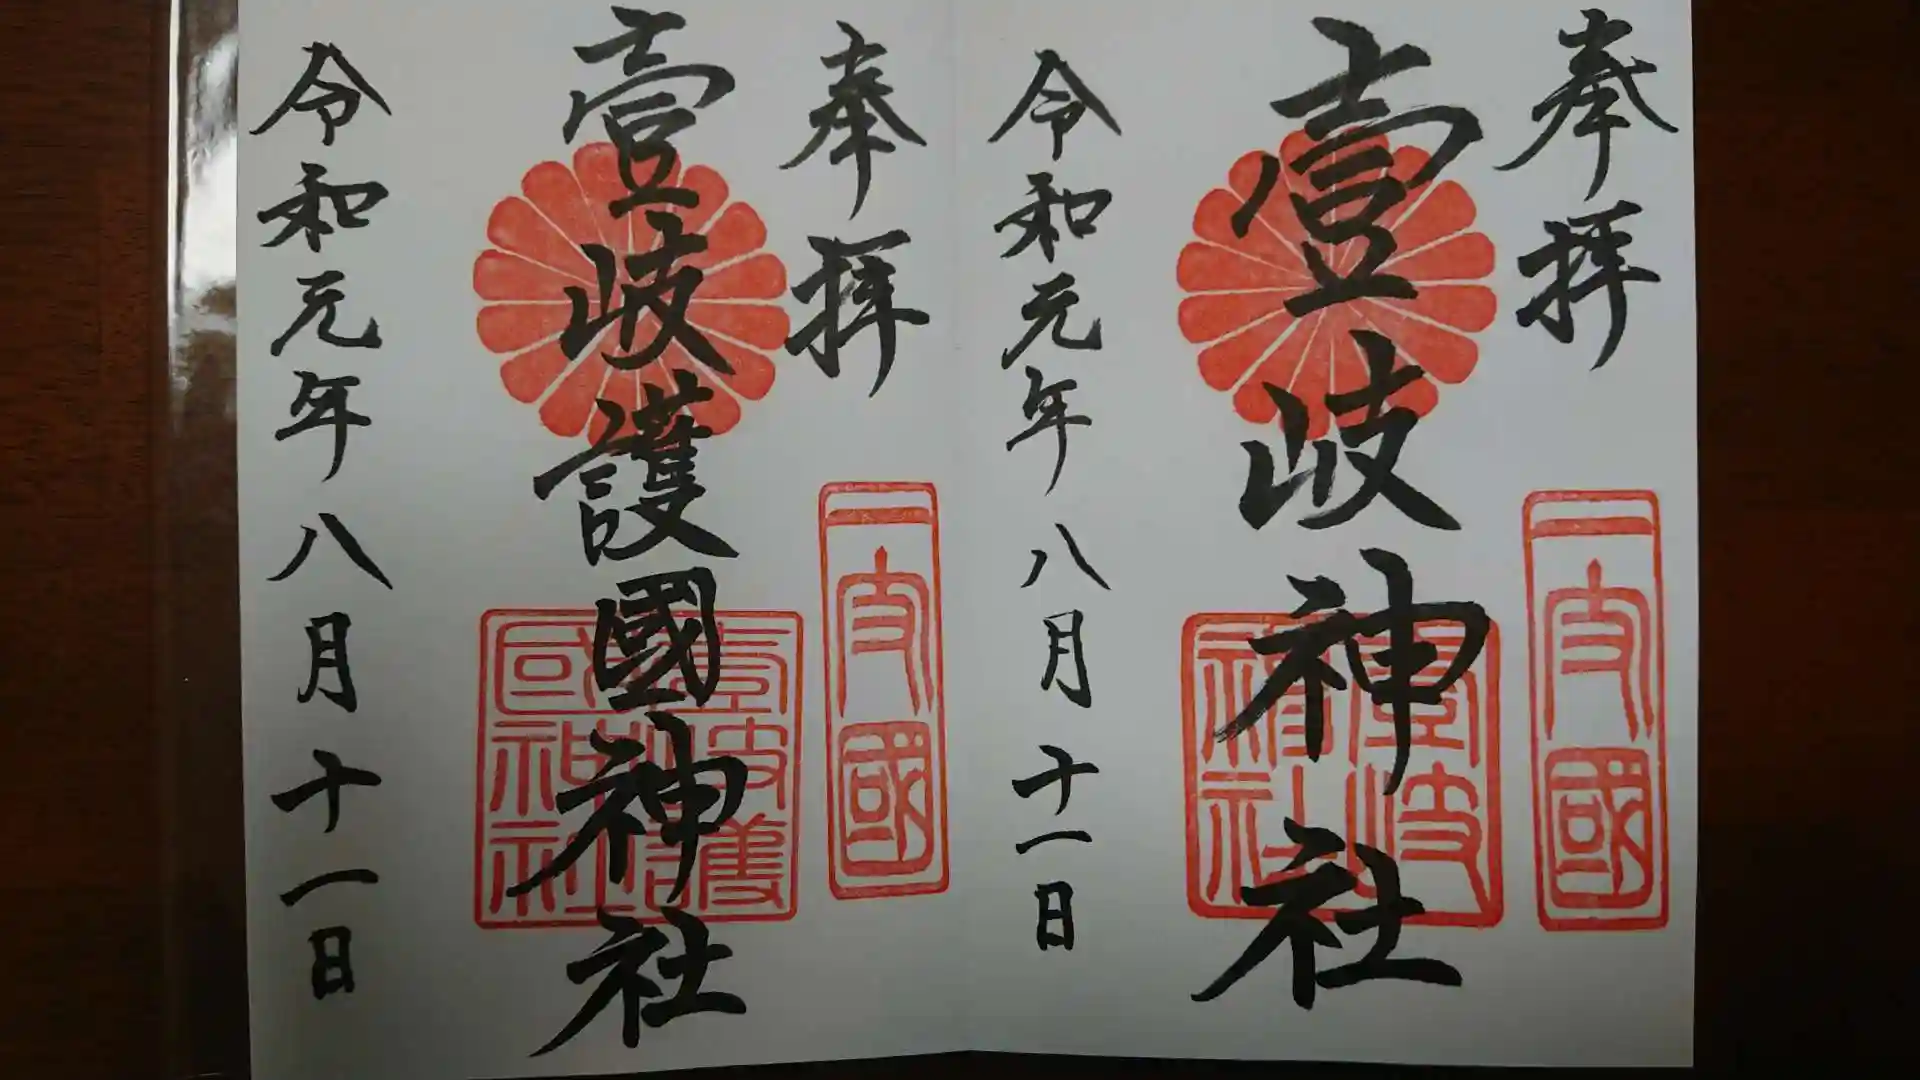 奉拝
壹岐神社
一支國
壹岐神社
令和元年八月十一日
奉拝
壹岐護國神社
一支國
壹岐護國神社
令和元年八月十一日